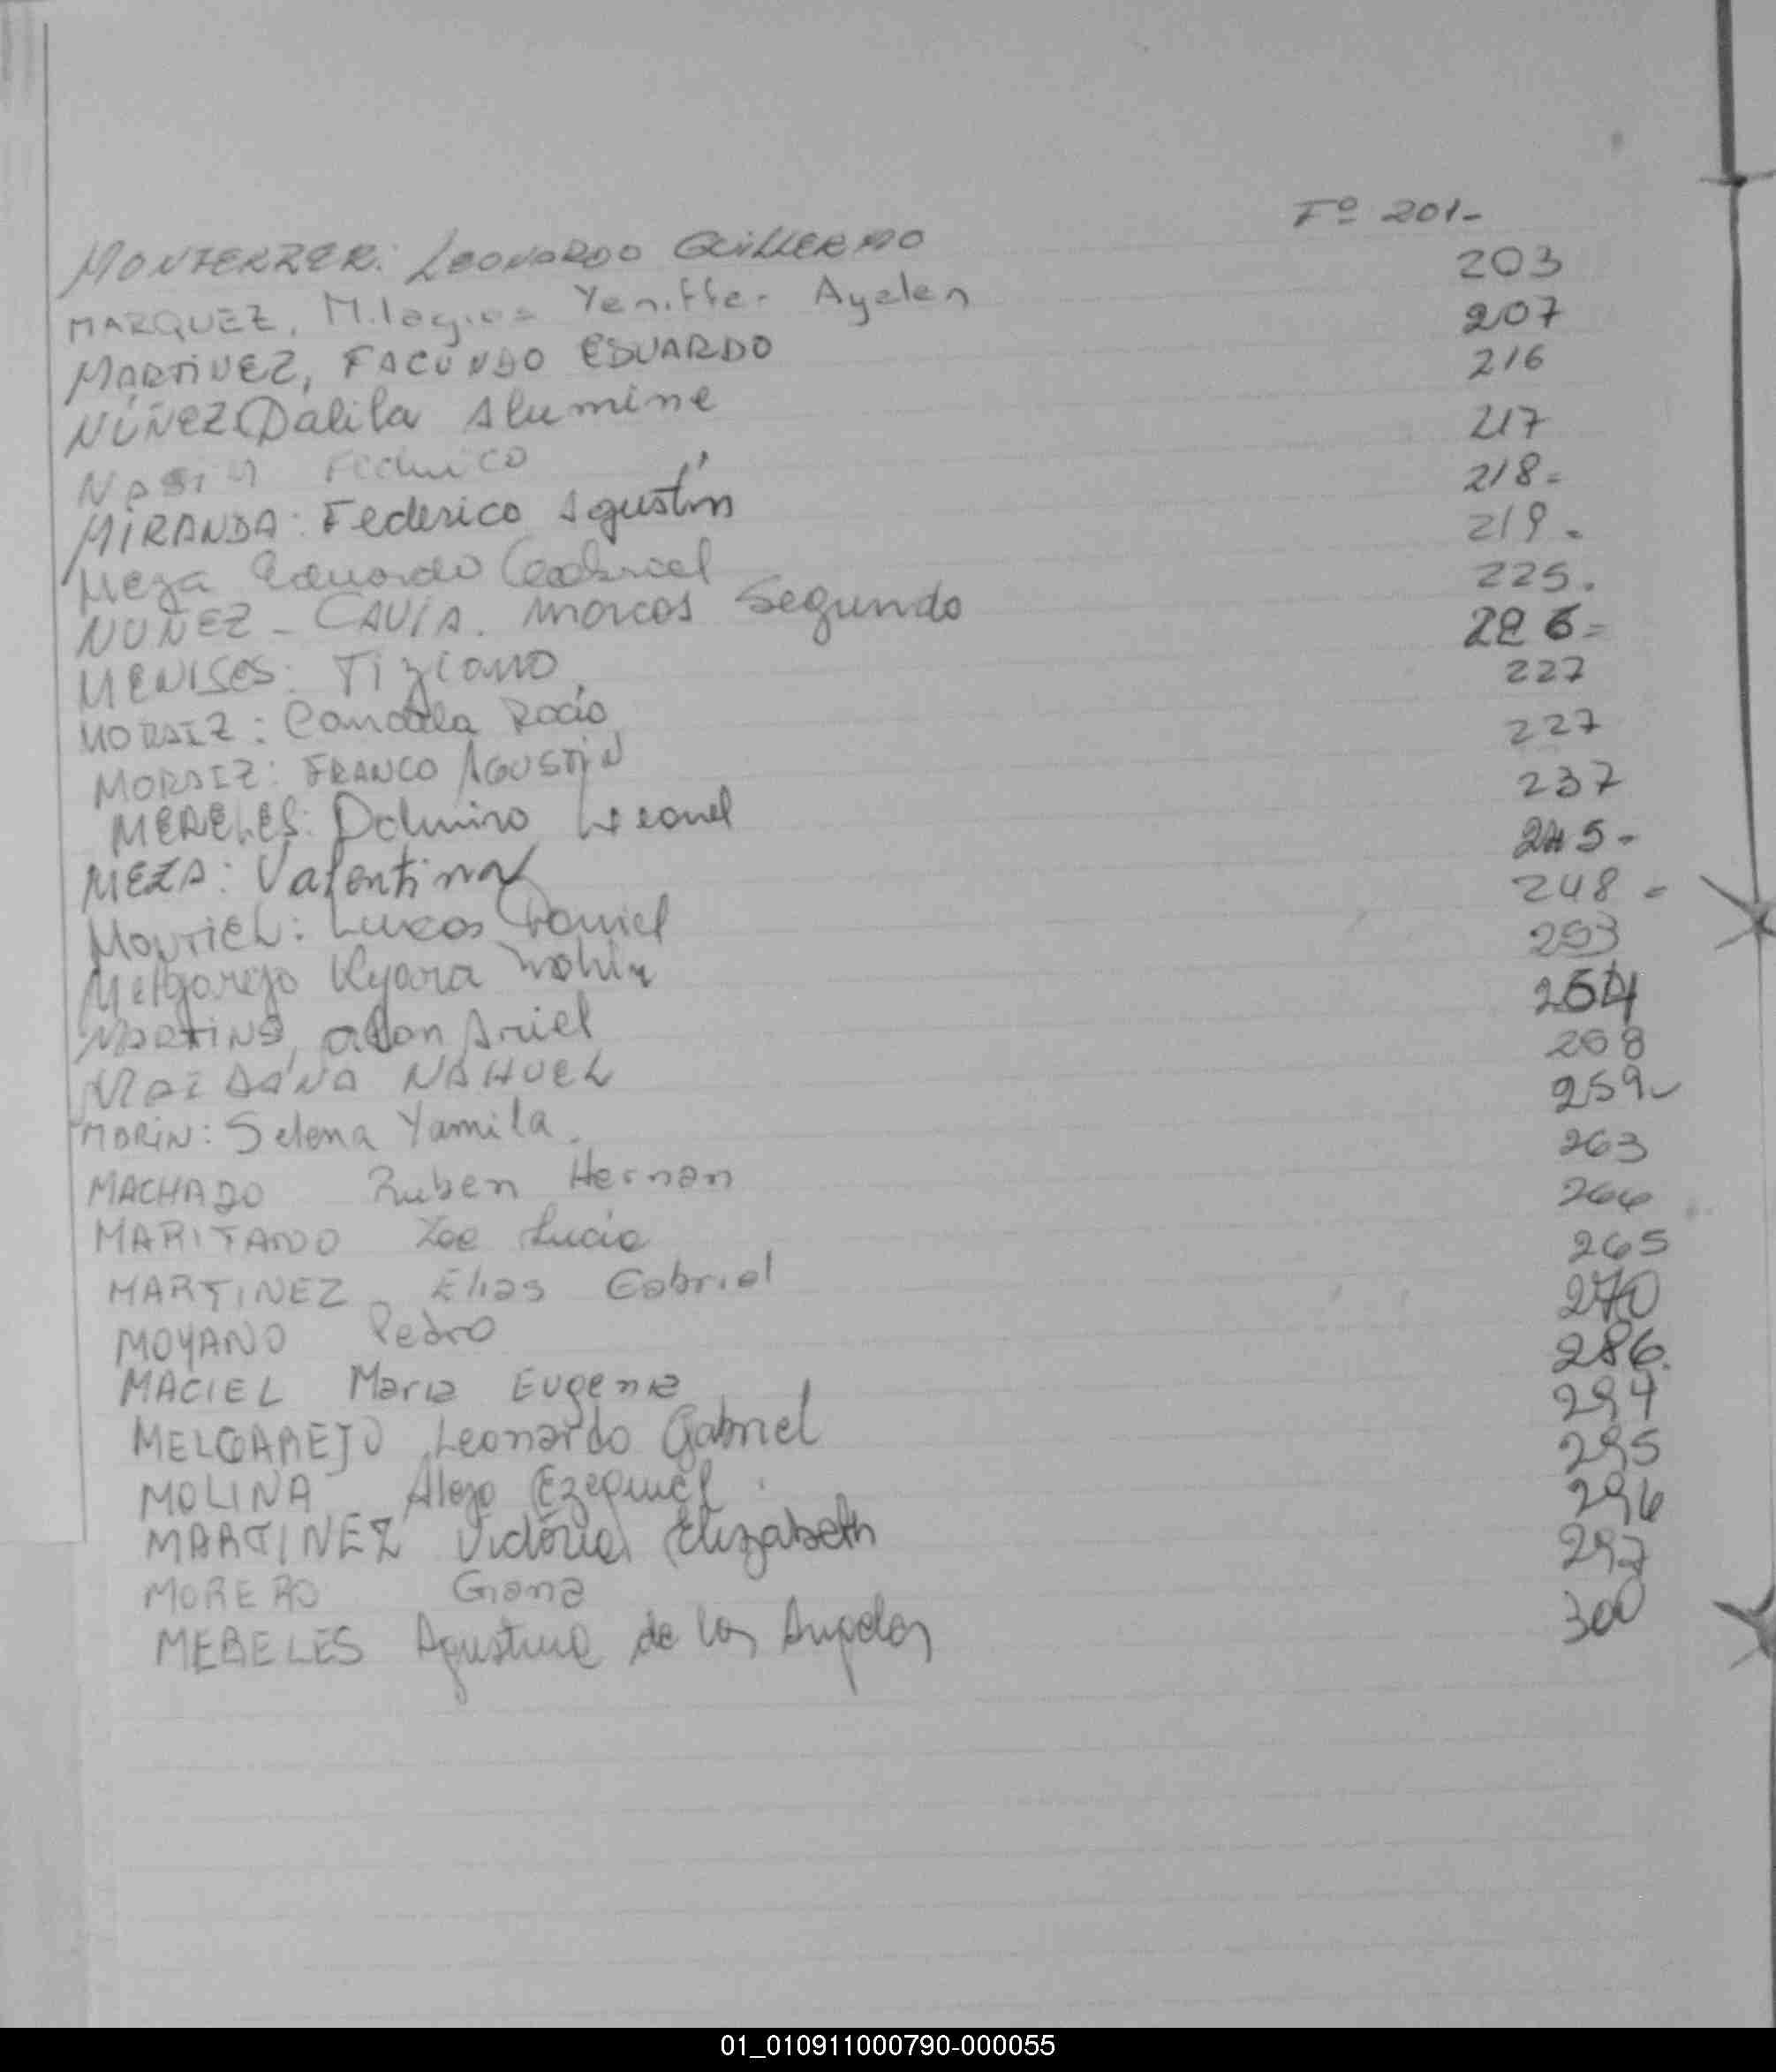 MONFERRER: LEONARDO GUILLERMO Fº 201-
MARQUEZ, Milagros Yeniffer Ayelen 203
MARTINEZ, FACUNDO EDUARDO 207
NUÑEZ Dalila Alumine 216
Federico 217
MIRANDA: Federico Agustín 218-
Meza Eduardo Gabriel 219-
NUÑEZ - CAVIA. Marcos Segundo 225.
MENISES: Tiziano 226-
MORAIZ: Candela Rocío 227
MORAIZ: FRANCO AGUSTIN 227
MERELES: Dalmiro Leonel 237
MEZA: Valentina 245-
Lucas Daniel 248-
Melgarejo Kyara 253
MARTINS, Alan Ariel 254
MAIDANA NAHUEL 258
MARIN: Selena Yamila. 259-
MACHADO Ruben Hernan 263
MARITANO Zoe Lucia 264
MARTINEZ Elias Gabriel 265
MOYANO Pedro 270
MACIEL Maria Eugenia 286.
MELGAREJO Leonardo Gabriel 294
MOLINA Alejo Ezequiel 295
MARTINEZ Victoria Elizabeth 296
MORERO Giana 297
MERELES Agustina de los Angeles 300
01_010911000790-000055